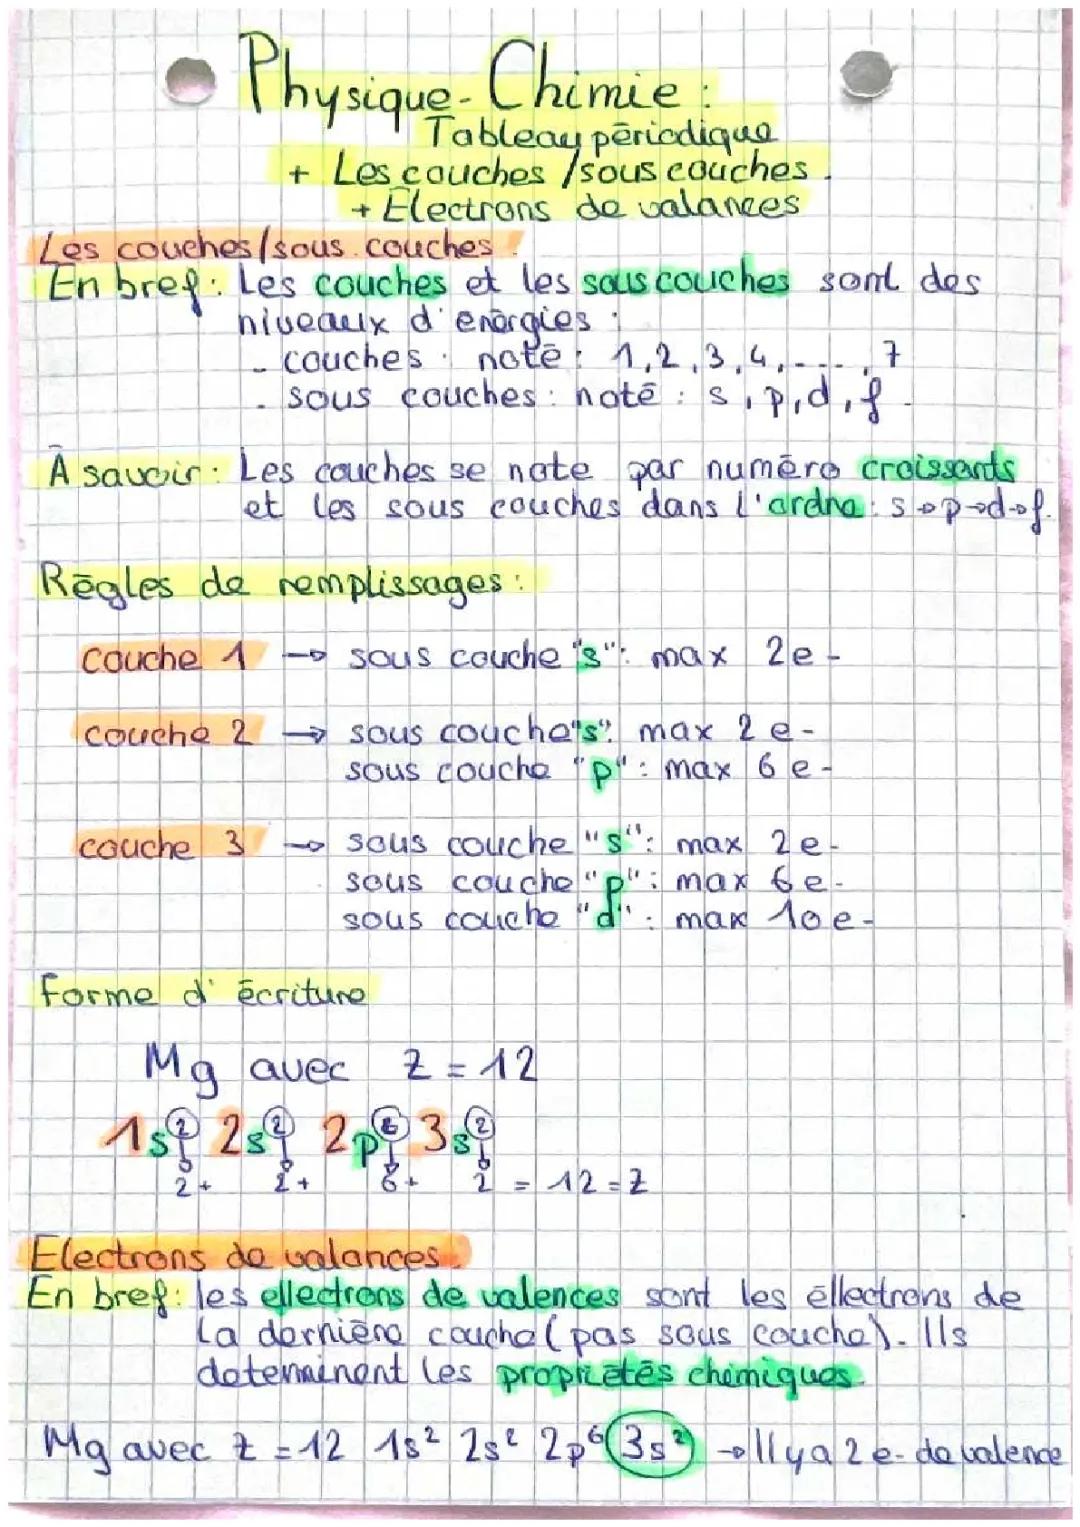 Physique-Chimie :
Tableau périodique
+ Les couches /sous couches.
+ Electrons de valances
Les couches/sous.couches.
En bref: Les couches et les sous couches sont des
niveaux d'énérgies :
- couches : noté : 1,2,3,4,----,7
- sous couches : noté : s, p, d, f.
À savoir : Les couches se note par numéro croissants
et les sous couches dans l'ordre : s→p→d→f.
Règles de remplissages :
couche 1 → sous couche "s": max 2e-
couche 2 → sous couche "s": max 2 e-
sous couche "p": max 6 e-
couche 3 → sous couche "s": max 2e-
sous couche "p": max 6e-
sous couche "d": max 10e-
Forme d'écriture
Mg avec Z = 12
1s² 2s² 2p⁶ 3s²
2+ 2+ 6+ 2 = 12 = Z
Electrons de valances.
En bref: les ellectrons de valences sont les éllectrons de
la dernière couche (pas sous couche). Ils
determinent les propriétés chimiques.
Mg avec Z = 12 1s² 2s² 2p⁶ 3s² → Il y a 2 e- de valence